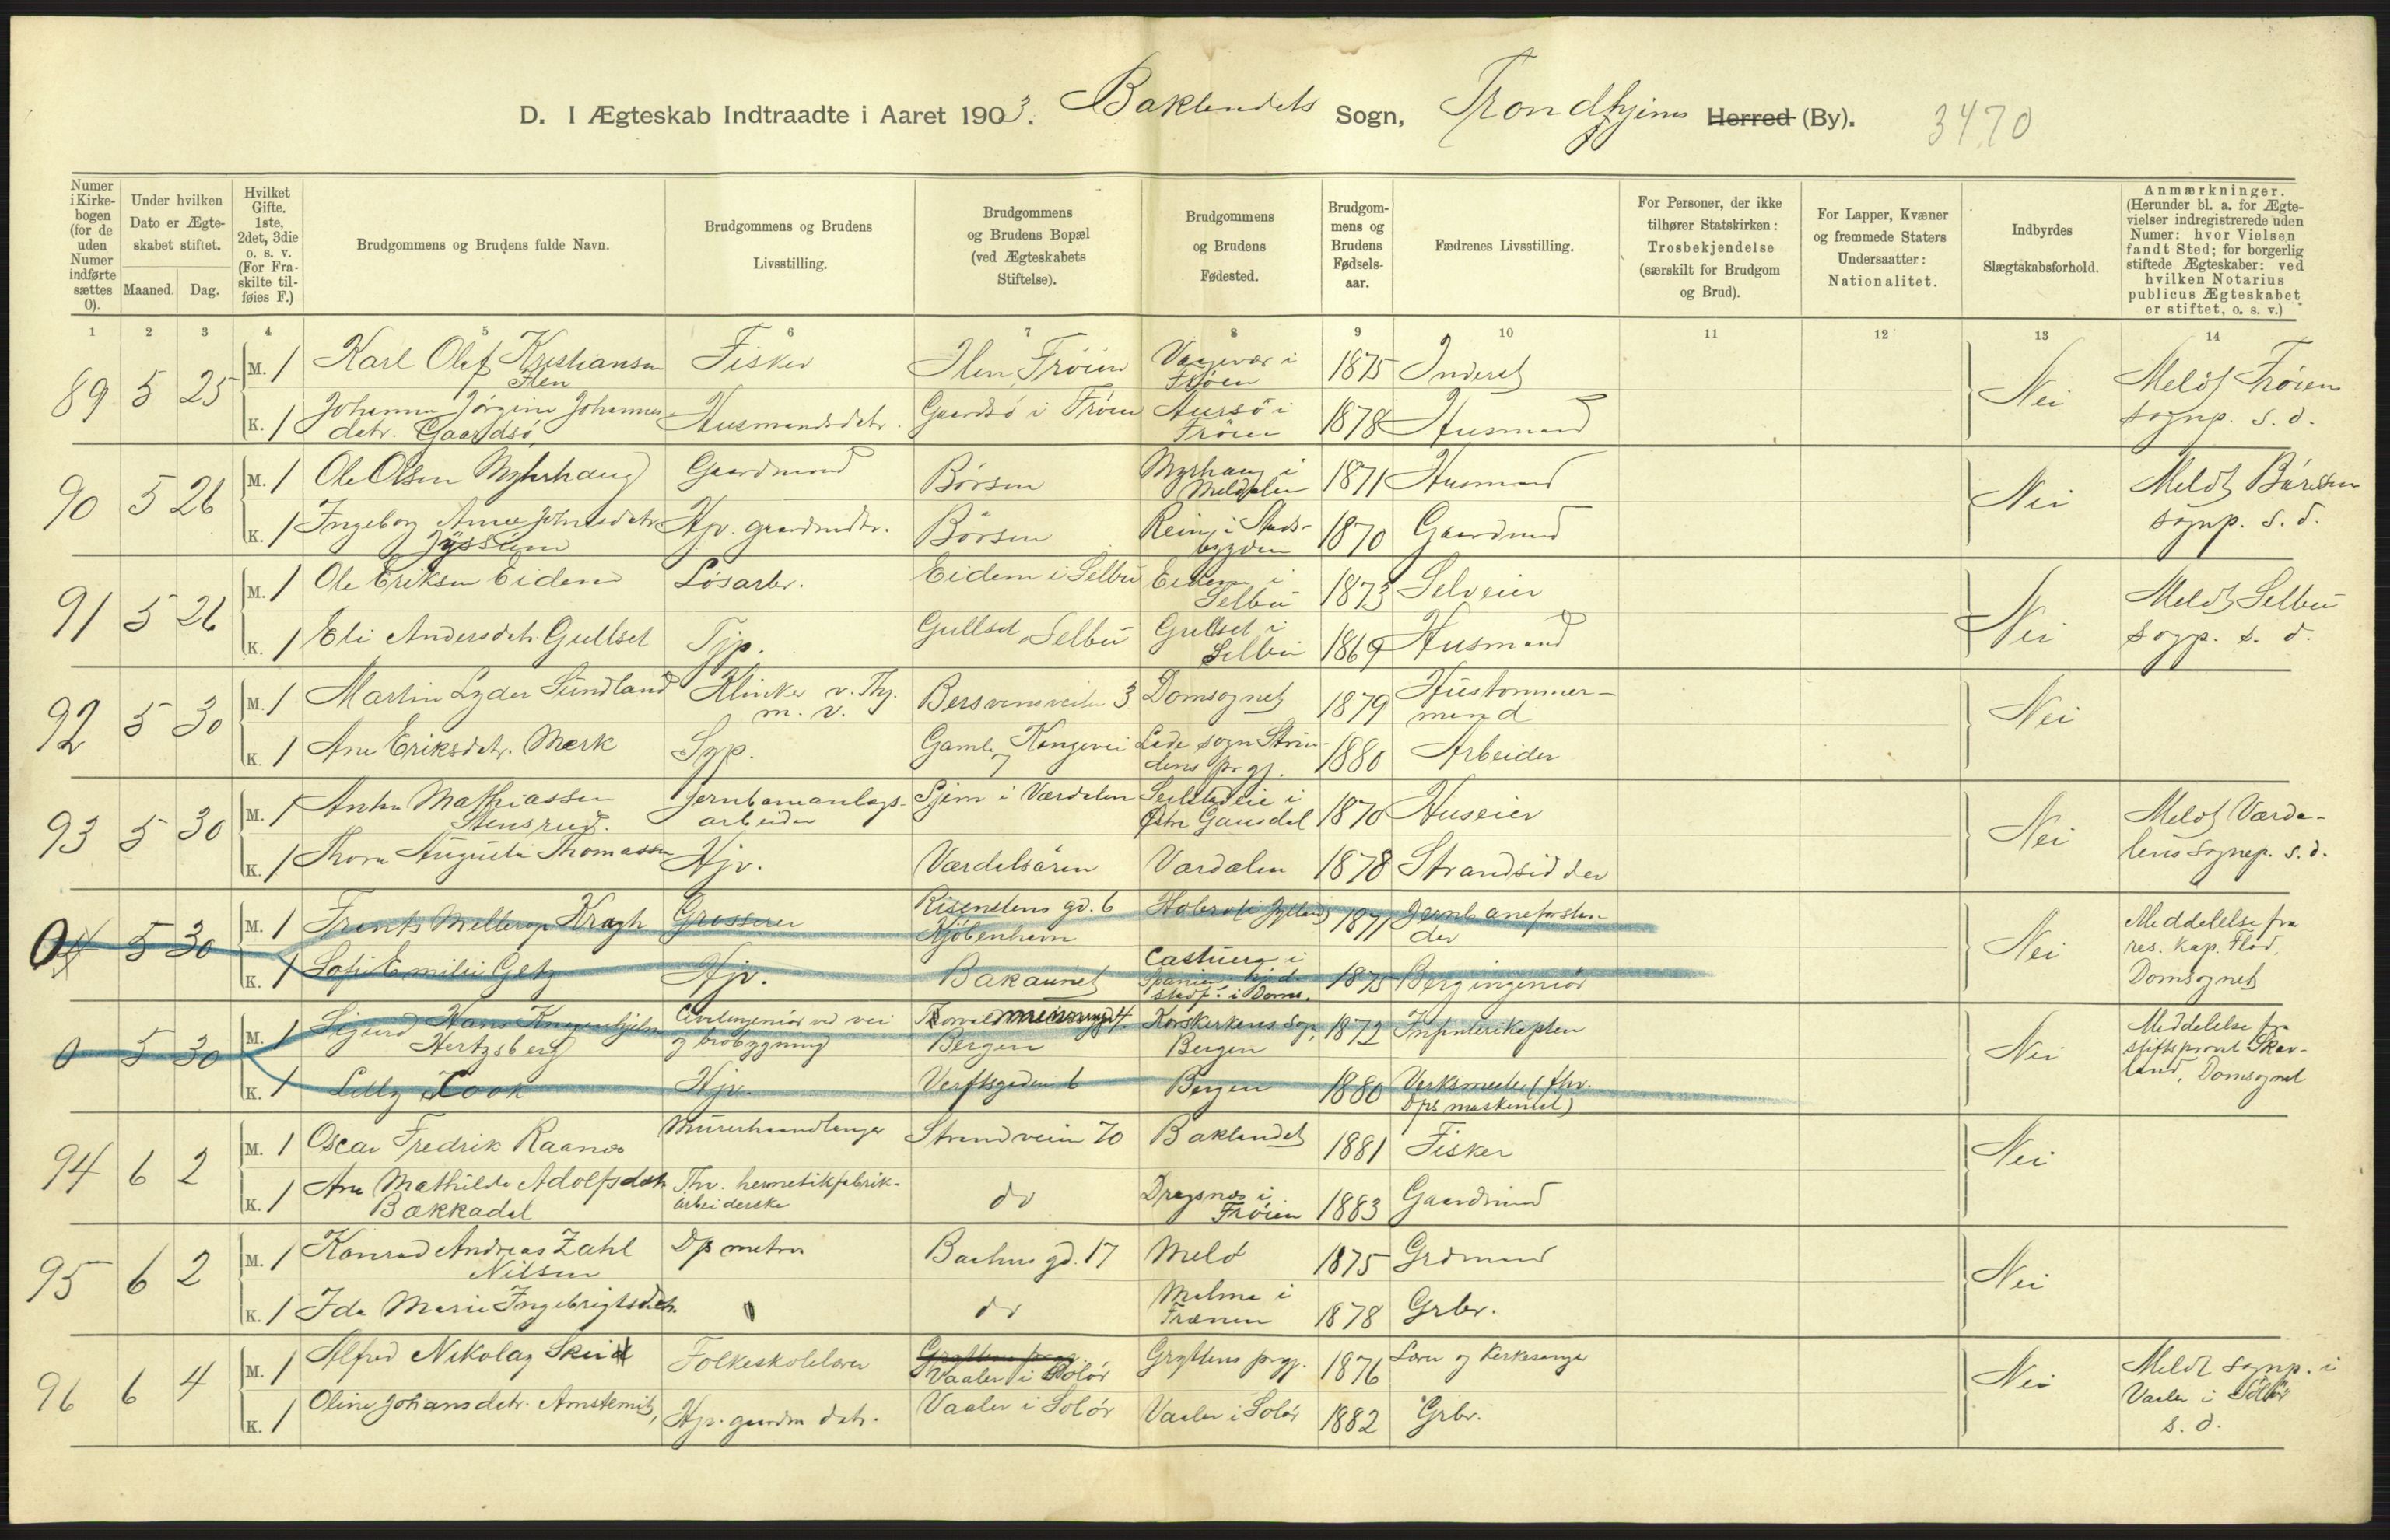 D. I Ægteskab Indtraadte i Aaret 1903. Baklandets Sogn, Trondhjems Herred (By). 3470
Numer i Kirke-bogen (for de uden Numer indførte sættes 0).
Under hvilken Dato er Ægte-skabet stiftet.
Maaned. Dag.
Hvilket Gifte. 1ste, 2det, 3die o. s. v. (For Fra-skilte til-føies F.)
Brudgommens og Brudens fulde Navn.
Brudgommens og Brudens Livsstilling.
Brudgommens og Brudens Bopæl (ved Ægteskabets Stiftelse).
Brudgommens og Brudens Fødested.
Brudgom-mens og Brudens Fødsels-aar.
Fædrenes Livsstilling.
For Personer, der ikke tilhører Statskirken: Trosbekjendelse (særskilt for Brudgom og Brud).
For Lapper, Kvæner og fremmede Staters Undersaatter: Nationalitet.
Indbyrdes Slægtskabsforhold.
Anmærkninger. (Herunder bl. a. for Ægte-vielser indregistrerede uden Numer: hvor Vielsen fandt Sted; for borgerlig stiftede Ægteskaber: ved hvilken Notarius publicus Ægteskabet er stiftet, o. s. v.)
1 2 3 4 5 6 7 8 9 10 11 12 13 14
89 5 25 M. 1 Karl Olaf Kristiansen Fisker Frøien i Frøien 1875 Nei Meldt Frøien
K. 1 Johanna Jørgine Johannes- detr. Gaardsö Husmandsdatr. Gaardsö i Frøien Aursö i Frøien 1878 Husmand sognp. s. d.
90 5 26 M. 1 Ole Olsen Myhrhaug Gaardmand Børsen Myrhaug i Meldalen 1871 Husmand Nei Meldt Børsen
K. 1 Ingeborg Johnsdatr Hjv. gaardmdtr. Børsen Rein i Stads-bygden 1870 Gaardmand sognp. s. d.
91 5 26 M. 1 Ole Eriksen Eidem Løsarbr. Eidem i Selbu Eidem i Selbu 1873 Selveier Nei Meldt Selbu
K. 1 Eli Andersdatr. Gullset Tjp. Gullset, Selbu Gullset i Selbu 1869 Husmand sogp. s. d.
92 5 30 M. 1 Martin Lyder Sundland Klinker v. Thj. m. v. Bersvensveiten 3 Domsognet 1879 Hustømmer-mand Nei
K. 1 Ane Eriksdatr. Mærk Syp. Gamle Kongevei 7 Lade sogn Strin-dens prgj. 1880 Arbeider
93 5 30 M. 1 Anton Mathiassen Stensrud. Jernbaneanlægs-arbeider i Værdalen i Østre Gausdal 1870 Huseier Nei Meldt Værda-
K. 1 Thora Augusta Thomassen Hjv. Værdalsøren Værdalen 1878 Strandsidder lens sognep. s. d.
0 5 30 M. 1 Mellerup Kragh Grosserer gd. 6 Kjøbenhavn Hobro i Jylland 1871 Jernbaneforstan-der Nei Meddelelse fra res. kap. Flod,
K. 1 Sofie Emilie Getz Hjv. Bakaunet i Spanien 1875 Bergingeniør Domsognet
0 5 30 M. 1 Sigurd Hans Hertzberg Civilingeniør ved vei og brobygning Bergen Korskirkens sogn, Bergen 1872 Infanterikaptein Nei Meddelelse fra stiftsprovst Skav-
K. 1 Lilly Hjv. Verftsgaden 6 Bergen 1880 Verksmester land, Domsognet
94 6 2 M. 1 Oscar Fredrik Raanes Murerhaandlanger Strandveien 70 Baklandet 1881 Fisker Nei
K. 1 Ane Mathilde Adolfsdatr Bakkadal Fhv. hermetikfabrik-arbeiderske do Dragsnes i Frøien 1883 Gaardmand
95 6 2 M. 1 Konrad Andreas Zahl Nilsen Dps matros Bachus gd. 17 Melö 1875 Grdmand Nei
K. 1 Ida Marie Ingebrigtsdatr. do Malme i Frænen 1878 Grbr.
96 6 4 M. 1 Alfred Nikolay Folkeskolelærer Vaaler i Solør Gryttens prgj. 1876 Lærer og kirkesanger Nei Meldt sognp. i Vaaler i Solør
K. 1 Oline Johansdatr. Hjv. gaardm datr. Vaaler i Solør Vaaler i Solør 1882 Grbr. s. d.